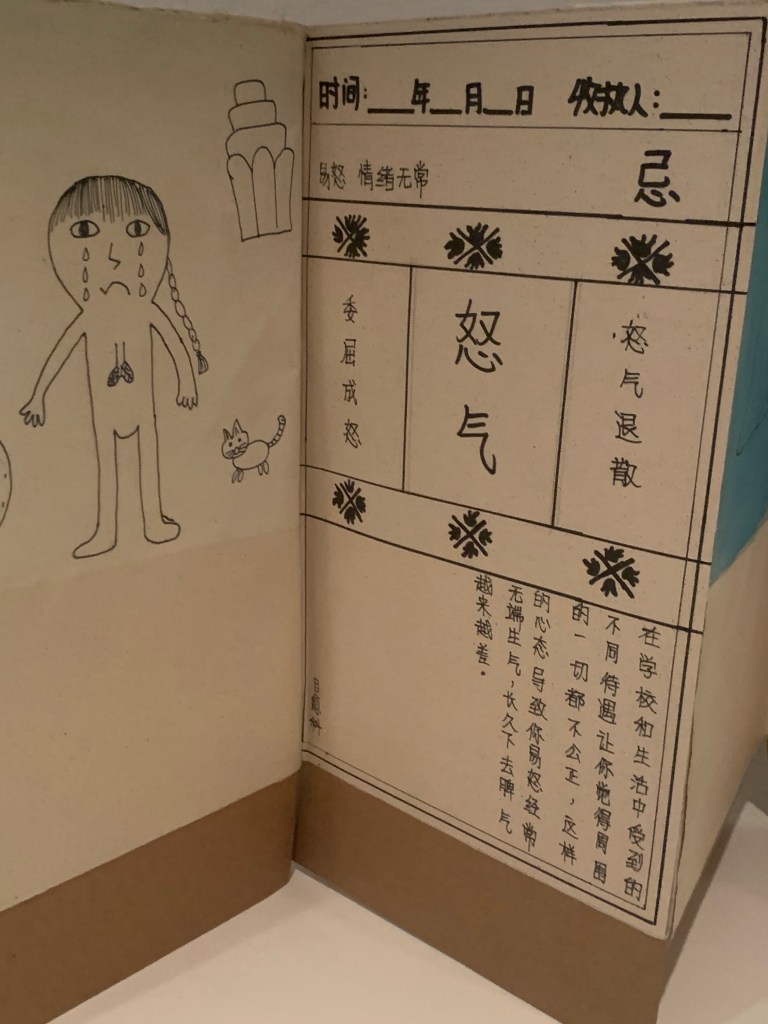 时间：___年__月__日 收放人：____
易怒 情绪无常
忌
怒气退散
怒气
委屈成怒
在学校和生活中受到的
不同待遇让你觉得周围
的一切都不公正，这样
的心态导致你易怒经常
无端生气，长久下去脾气
越来越差。